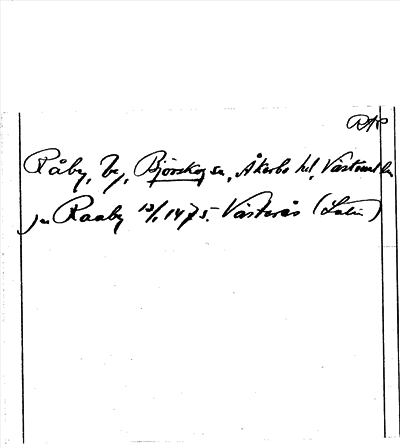 RAP
Råby, by, Björskog sn, Åkerbo hd, Västmanl. län
jn Raaby 13/1 1475. Västerås (Latin)